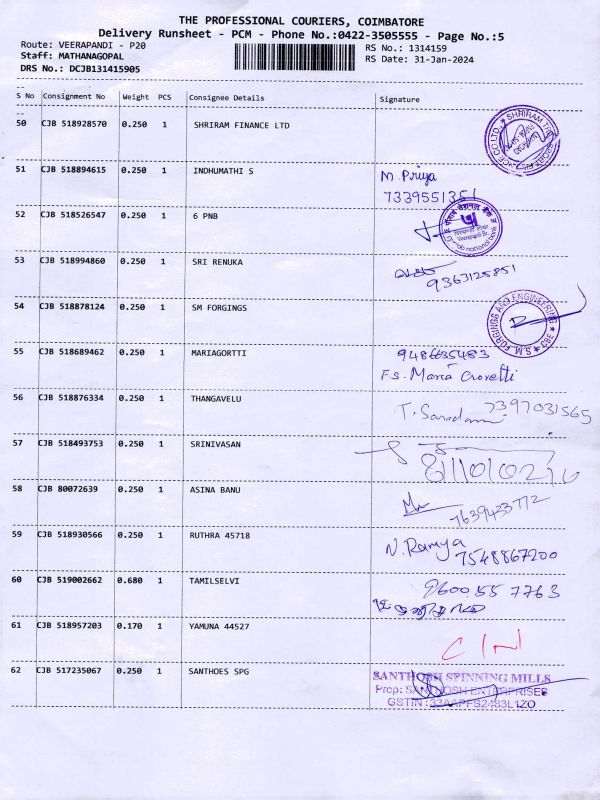 THE PROFESSIONAL COURIERS, COIMBATORE
Delivery Runsheet - PCM - Phone No.:0422-3505555 - Page No.:5
Route: VEERAPANDI - P20 RS No.: 1314159
Staff: MATHANAGOPAL RS Date: 31-Jan-2024
DRS No.: DCJB131415905
S No Consignment No Weight PCS Consignee Details Signature
50 CJB 518928570 0.250 1 SHRIRAM FINANCE LTD
51 CJB 518894615 0.250 1 INDHUMATHI S M. Priya
7339551351
52 CJB 518526547 0.250 1 6 PNB
53 CJB 518994860 0.250 1 SRI RENUKA 9363125851
54 CJB 518878124 0.250 1 SM FORGINGS S.M. FORGINGS AND ENGINEERING CBE
55 CJB 518689462 0.250 1 MARIAGORTTI 9486635483
FS. Maria Crovetti
56 CJB 518876334 0.250 1 THANGAVELU T. 7397031565
57 CJB 518493753 0.250 1 SRINIVASAN
58 CJB 80072639 0.250 1 ASINA BANU 7639433772
59 CJB 518930566 0.250 1 RUTHRA 45718 N. Ramya 7548867200
60 CJB 519002662 0.680 1 TAMILSELVI 9600 55 7763
61 CJB 518957203 0.170 1 YAMUNA 44527 CIN
62 CJB 517235067 0.250 1 SANTHOES SPG SANTHOSH SPINNING MILLS
Prop: SANTHOSH ENTERPRISES
GSTIN :33AAPFS2483L1ZO